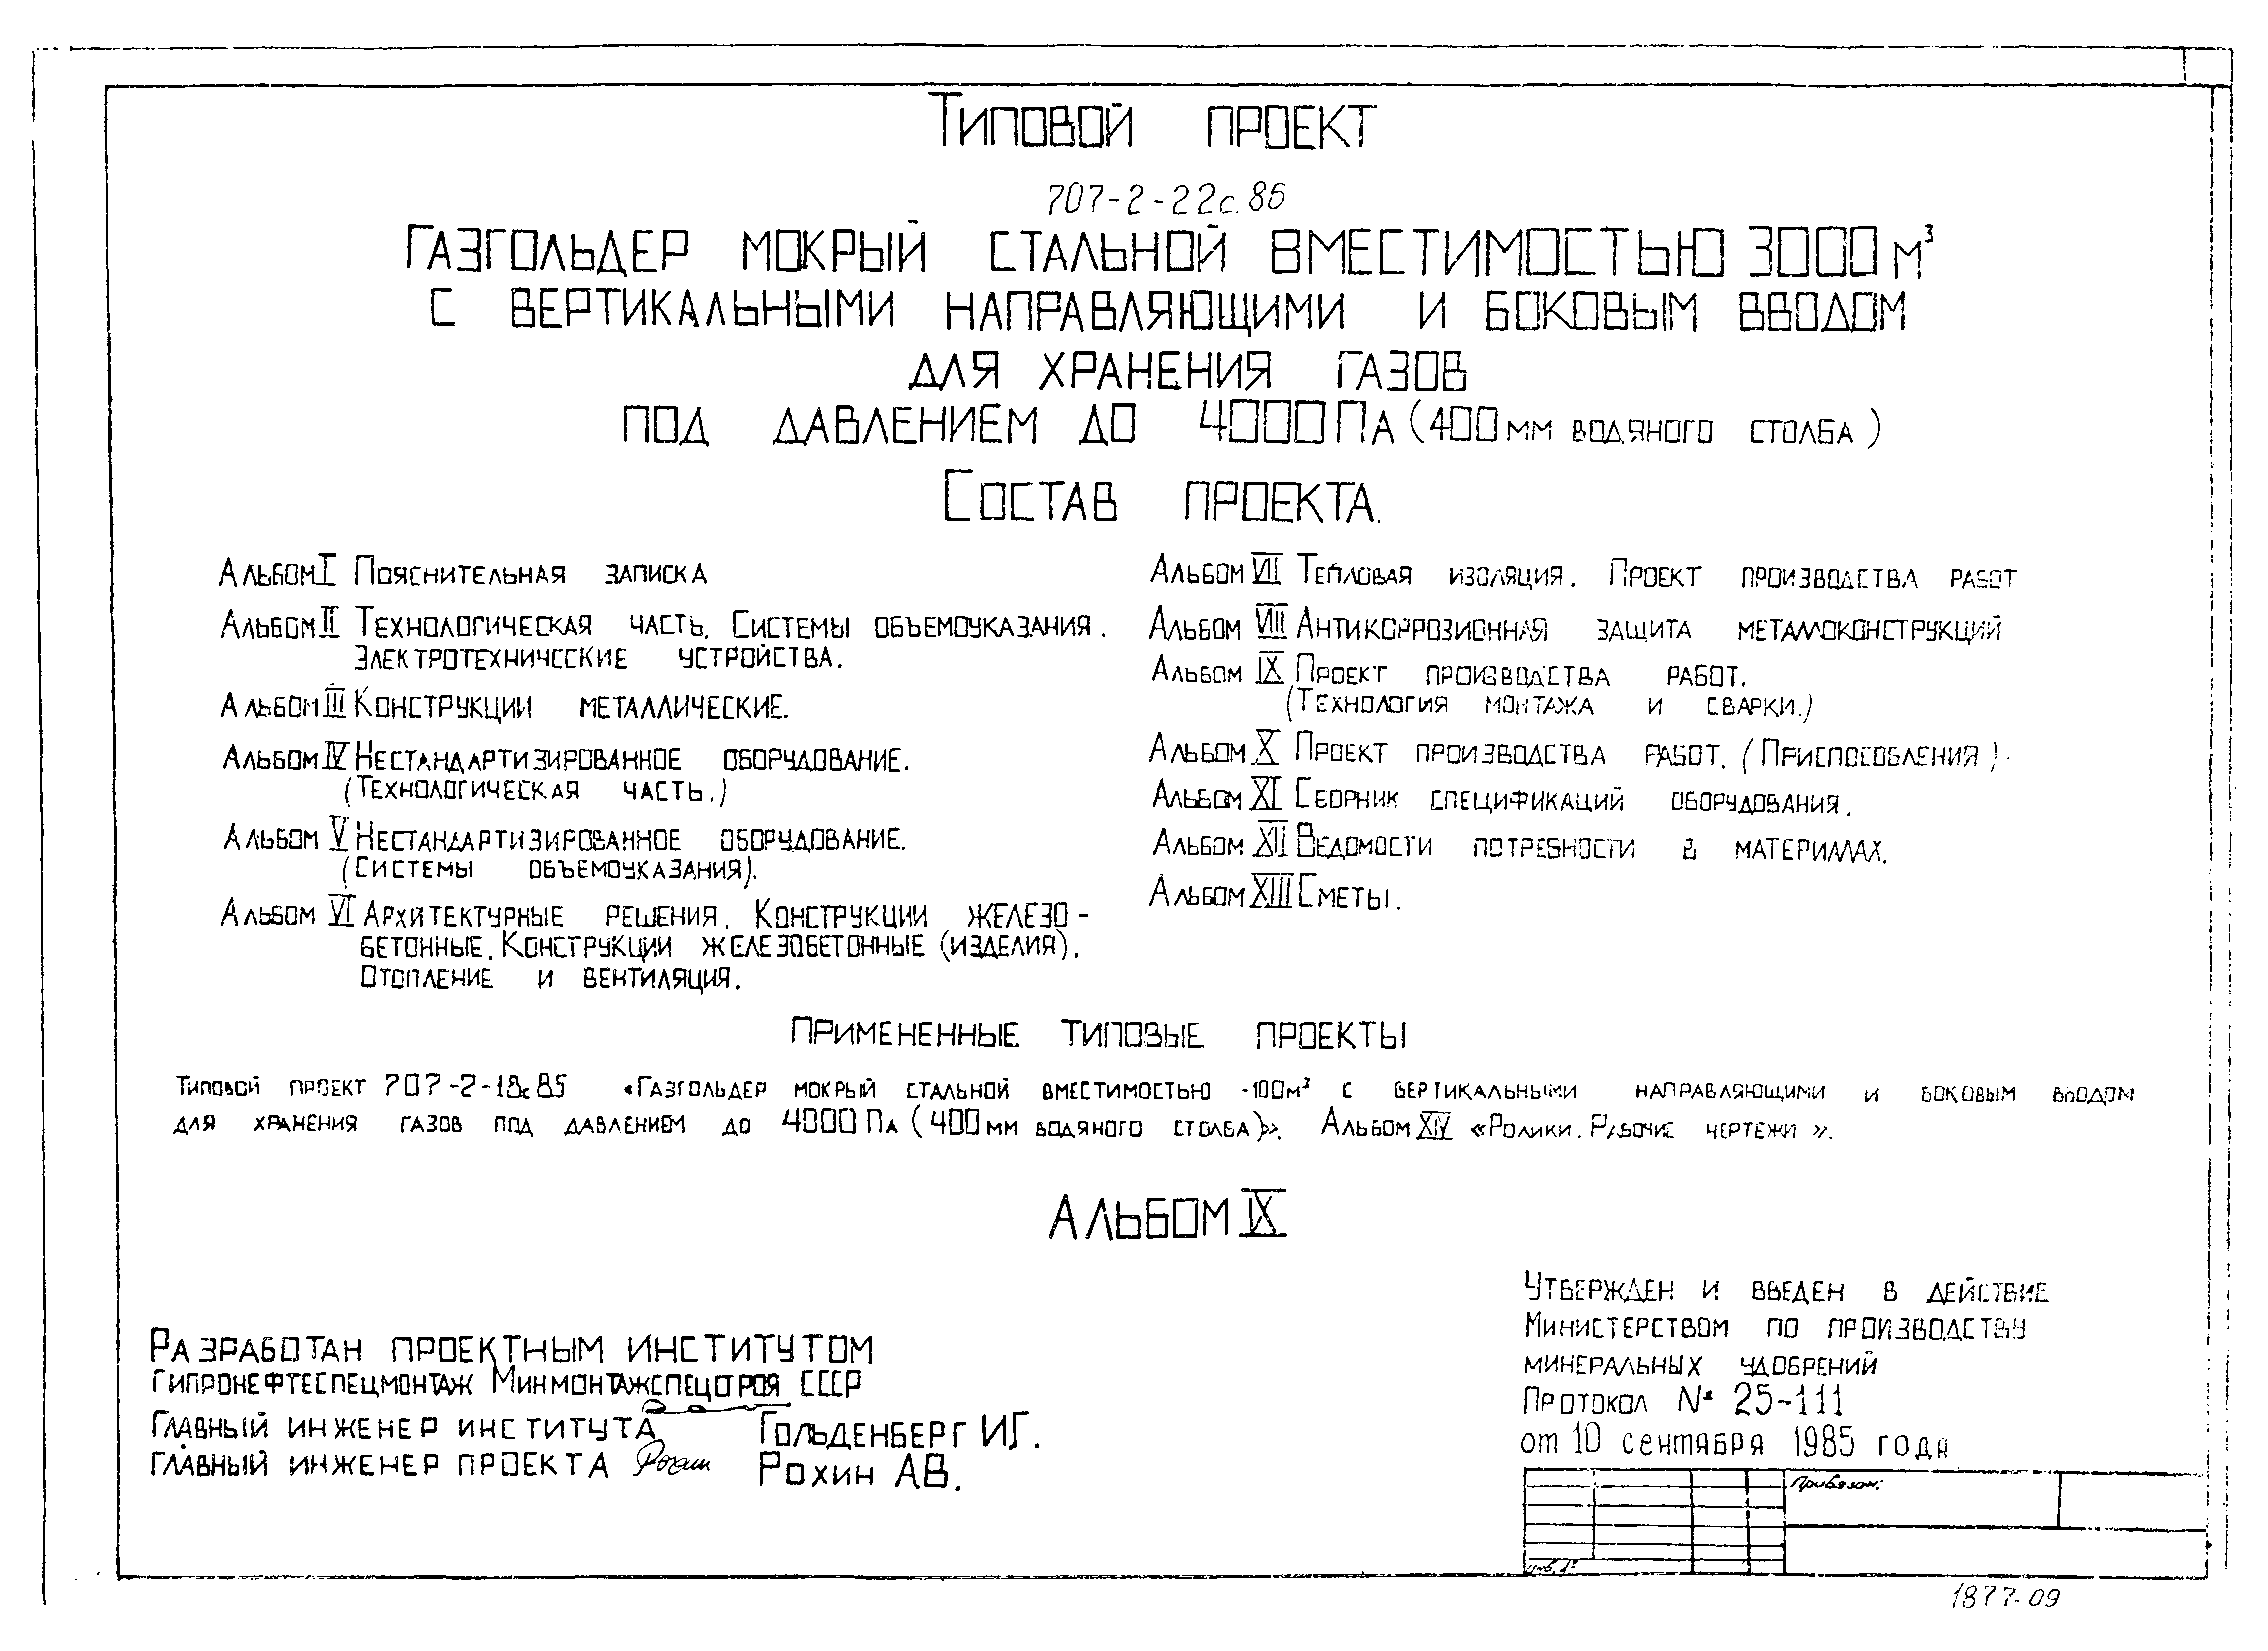 Типовой проект
707-2-22с.86
Газгольдер мокрый стальной вместимостью 3000 м³
с вертикальными направляющими и боковым вводом
для хранения газов
под давлением до 4000 Па (400 мм водяного столба)
Состав проекта.
Альбом I Пояснительная записка
Альбом II Технологическая часть. Системы объемоуказания.
Электротехнические устройства.
Альбом III Конструкции металлические.
Альбом IV Нестандартизированное оборудование.
(Технологическая часть.)
Альбом V Нестандартизированное оборудование.
(Системы объемоуказания).
Альбом VI Архитектурные решения. Конструкции железо-
бетонные. Конструкции железобетонные (изделия).
Отопление и вентиляция.
Альбом VII Тепловая изоляция. Проект производства работ
Альбом VIII Антикоррозионная защита металлоконструкций
Альбом IX Проект производства работ.
(Технология монтажа и сварки.)
Альбом X Проект производства работ. (Приспособления).
Альбом XI Сборник спецификаций оборудования.
Альбом XII Ведомости потребности в материалах.
Альбом XIII Сметы.
Примененные типовые проекты
Типовой проект 707-2-18с.85 «Газгольдер мокрый стальной вместимостью -100м³ с вертикальными направляющими и боковым вводом
для хранения газов под давлением до 4000 Па (400 мм водяного столба)». Альбом XIV «Ролики. Рабочие чертежи».
Альбом IX
Разработан проектным институтом
Гипронефтеспецмонтаж Минмонтажспецстроя СССР
Главный инженер института Гольденберг И.Г.
Главный инженер проекта Рохин А.В.
Утвержден и введен в действие
Министерством по производству
минеральных удобрений
Протокол № 25-111
от 10 сентября 1985 года
Привязан:
Инв. №
1877-09